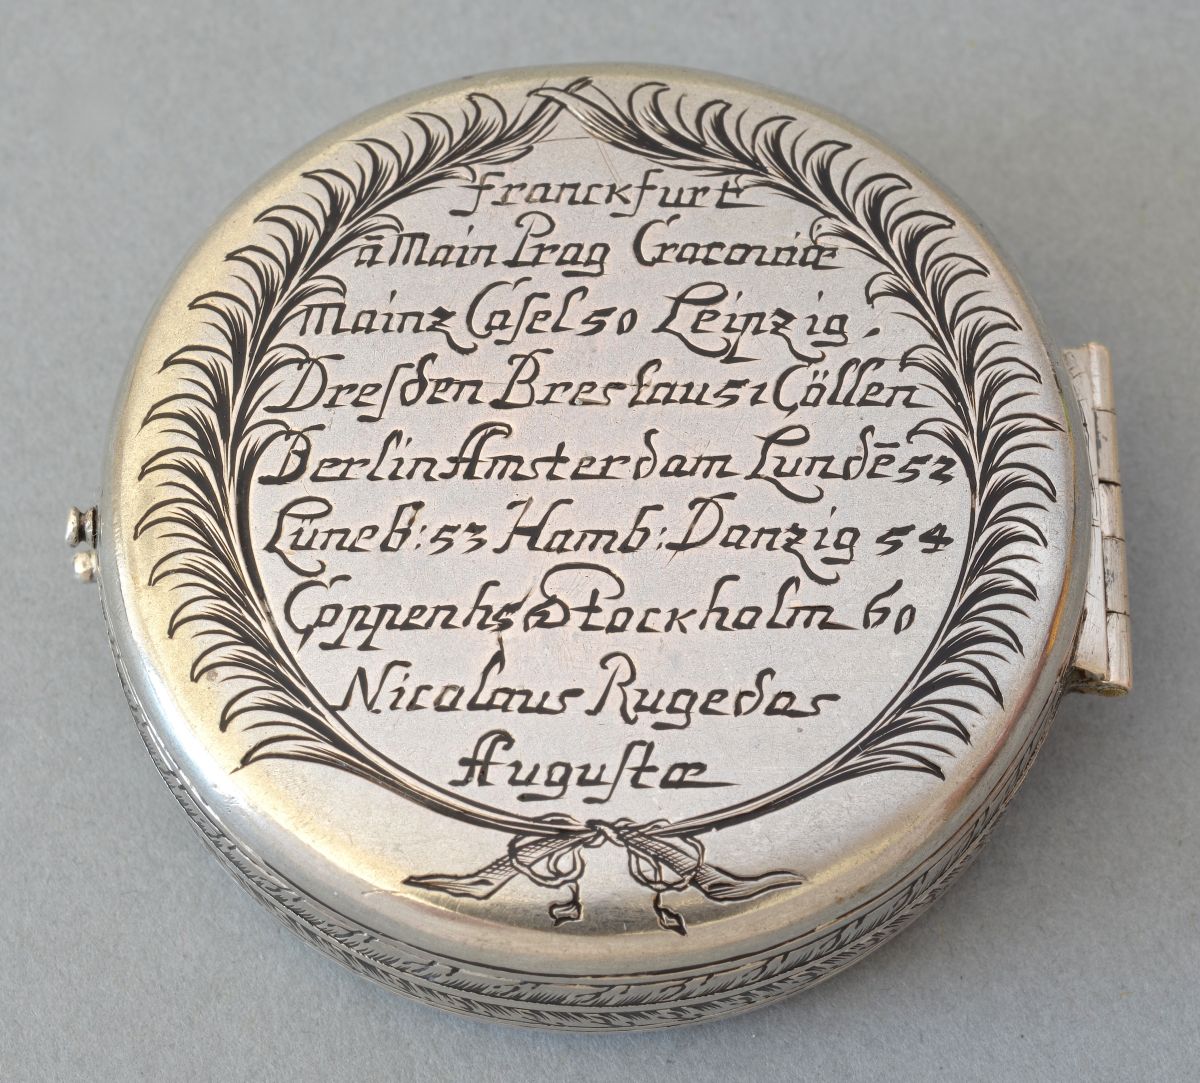 Franckfurt
â Main Prag Cracoviæ
Mainz Caſel 50 Leipzig,
Dreſden Breslau 51 Cöllen
Berlin Amsterdam Lundē 52
Lüneb: 53 Hamb: Danzig 54
Coppenhs Stockholm 60
Nicolaus Rugedas
Auguſtæ